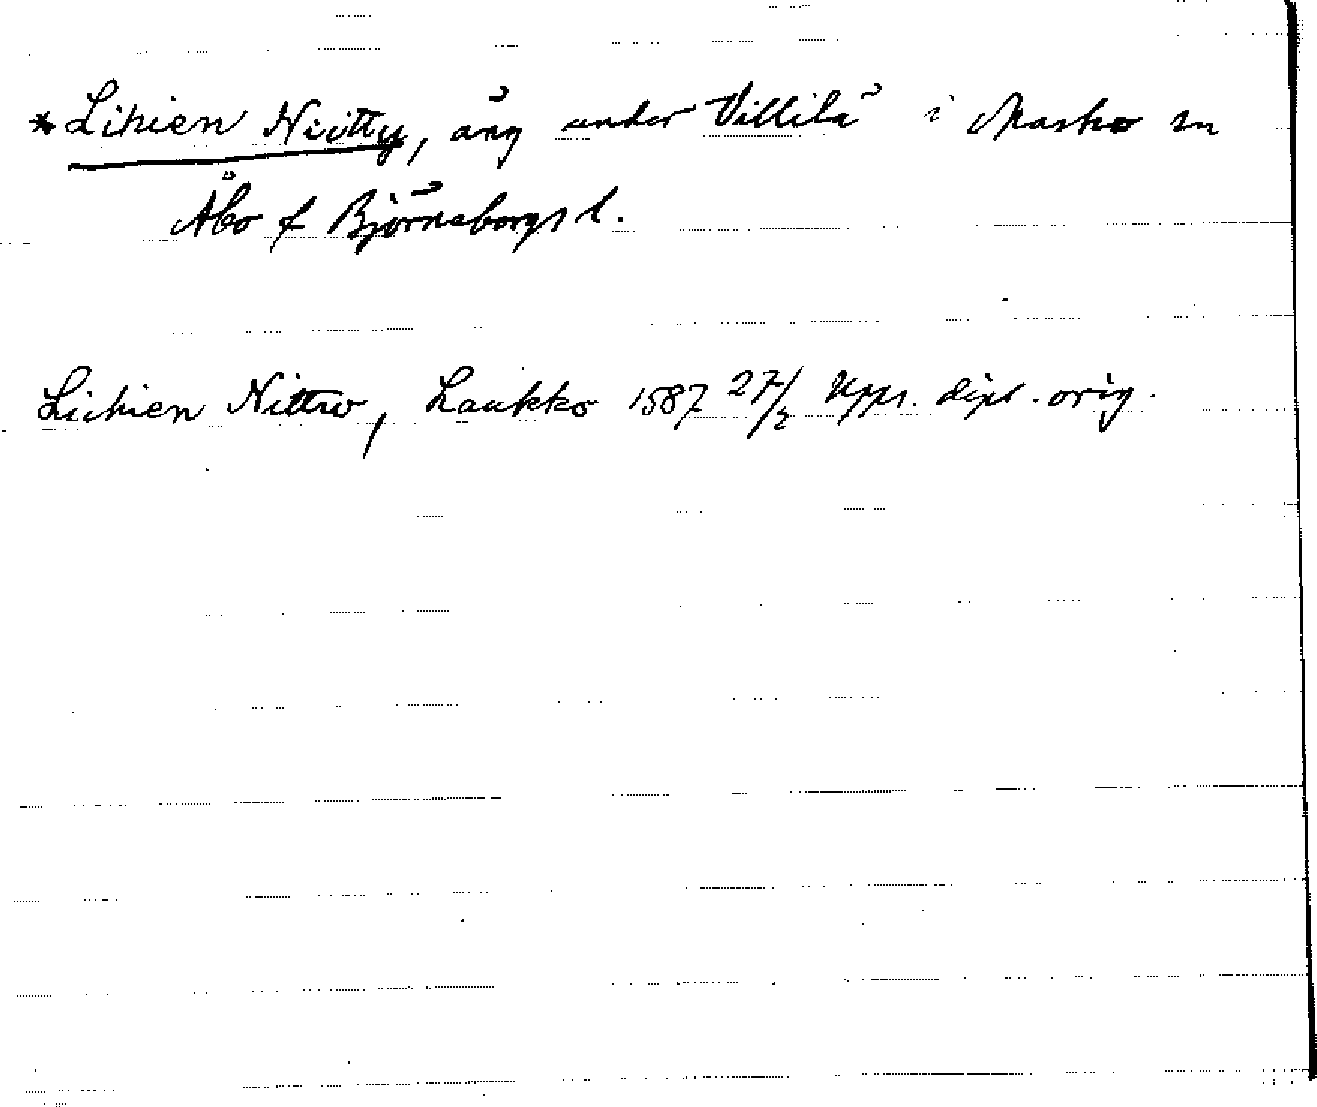 *Lihien Niitty, äng under Villilä i Masko sn
Åbo & Björneborgs l.
Lichien Nittw, Laukko 1587 27/2 Upps. dipl. orig.